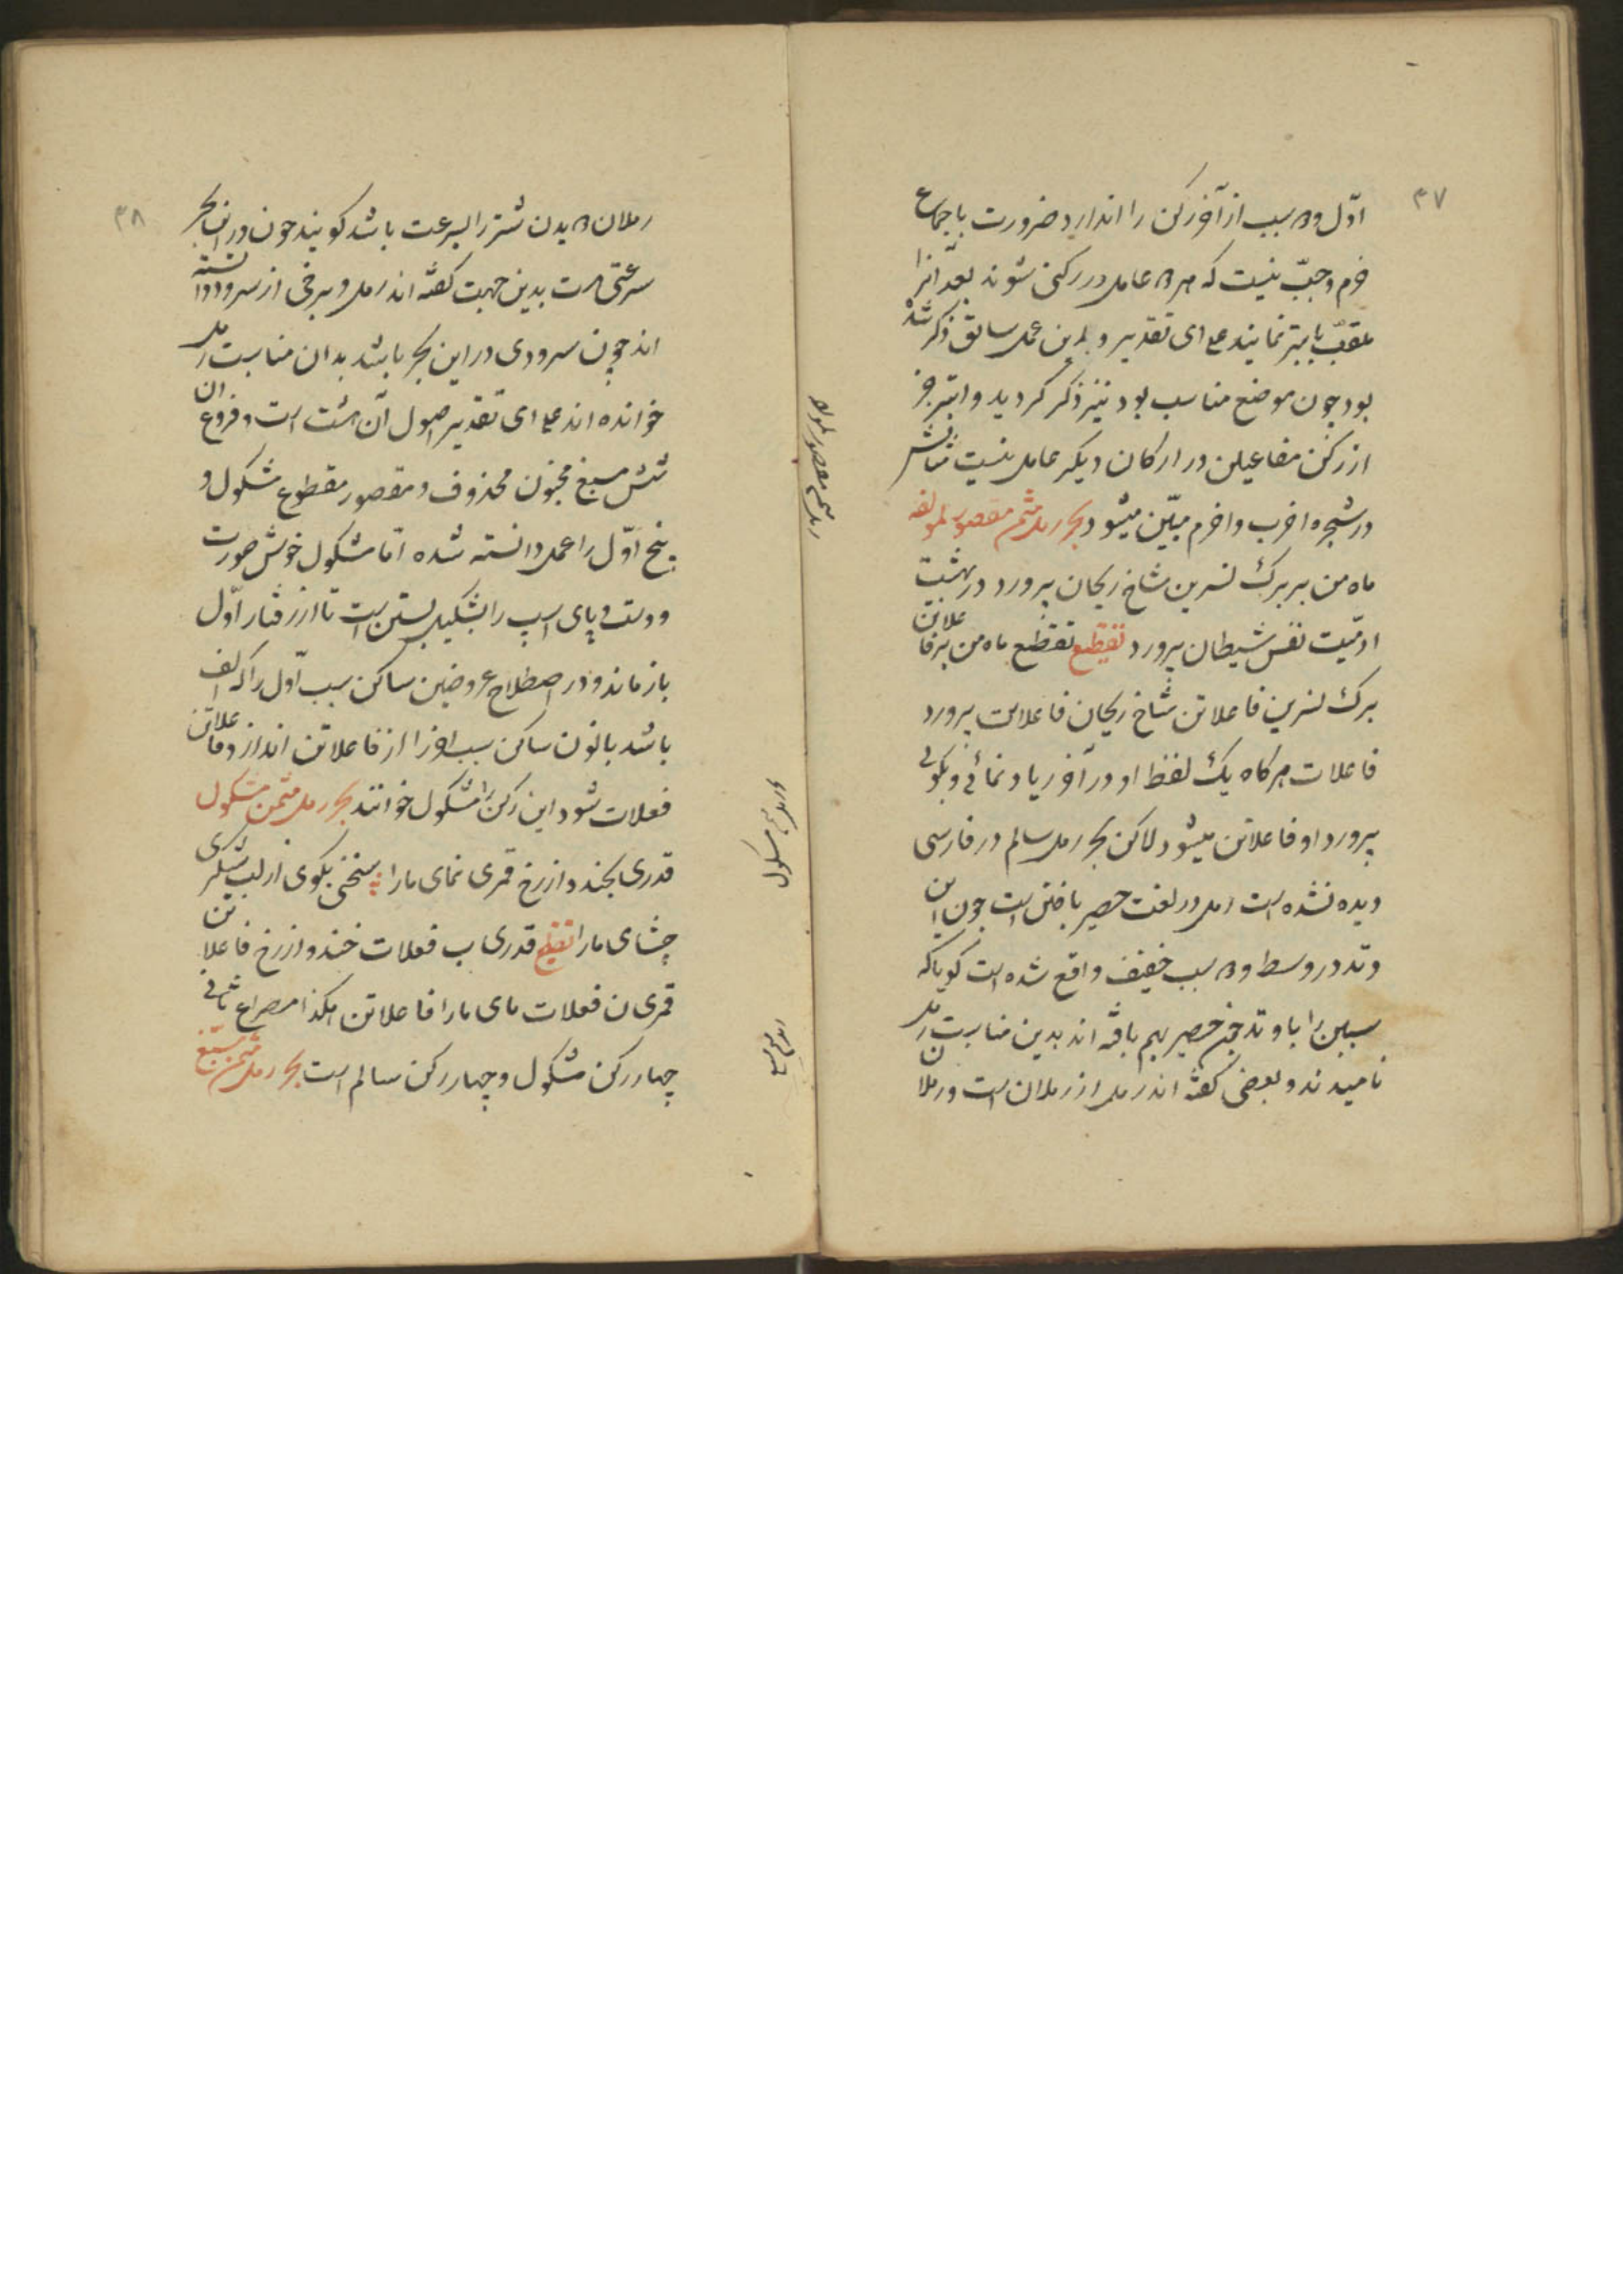 ۳۷
اوّل و دو سبب از آخر رکن را اندازد ضرورت باجماع
خرم و جبّ نیست که هر دو عامل در رکنی شوند بعد آنرا
ملقّب بابتر نمایند علی ای تقدیر و این عمل سابق ذکر شده
بود چون موضع مناسب بود نیز ذکر کردید و ابتر جز
از رکن مفاعیلن در ارکان دیکر عامل نیست مثالش
در شجره اخرب و اخرم مبیّن میشود بحر رمل مثمن مقصور لمؤلفه
ماه من بر برک نسرین شاخ ریحان پرورد در بهشت
ادمیّت نفس شیطان پرورد تقطیع تقطیع ماه من بر فاعلاتن
برک نسرین فاعلاتن شاخ ریحان فاعلاتن پرورد
فاعلات هر کاه یک لفظ او در آخر زیاد نمائی و بکوئی
پرورد او فاعلاتن میشود لاکن بحر رمل سالم در فارسی
دیده نشده است رمل در لغت حصیر بافتن است چون این
وتد در وسط دو سبب خفیف واقع شده است کویا که
سببین را با وتد چون حصیر بهم بافته اند بدین مناسبت رمل
نامیدند و بعضی کفته اند رمل از رملان است و رملان
رمل مثمن مقصور لمؤلفه
۳۸
رملان دویدن شتر را بسرعت باشد کویند چون در این بحر
سرعتی است بدین جهت کفته اند رمل و برخی از سرود دانسته
اند چون سرودی در این بحر باشد بدان مناسبت رمل
خوانده اند علی ای تقدیر اصول آن هشت است و فروع ان
شش مسبغ مخبون محذوف و مقصور مقطوع مشکول و
پنج اوّل را عمل دانسته شده امّا مشکول خوش صورت
و دست و پای اسب را بشکیل بستن است تا از رفتار اوّل
باز ماند و در اصطلاح عروضین ساکن سبب اوّل را که الف
باشد با نون ساکن سبب اخر را از فاعلاتن اندازد فاعلاتن
فعلات شود این رکن را مشکول خوانند بحر رمل مثمن مشکول
قدری بخند و از رخ قمری نمای ما را سخنی بکوی از لب شکری
چشای ما را تقطیع قدری ب فعلات خند و از رخ فاعلاتن
قمری ن فعلات مای ما را فاعلاتن هکذا مصراع ثانی
چهار رکن مشکول و چهار رکن سالم است بحر رمل مثمن مسبّغ
بحر رمل مثمن مشکول